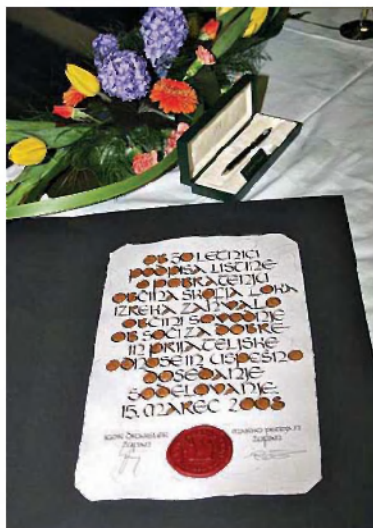 OB 30 LETNICI
PODPISA LISTINE
O POBRATENJU
OBČINA ŠKOFJA LOKA
IZREKA ZAHVALO
OBČINI SOVODNJE
OB SOČI ZA DOBRE
IN PRIJATELJSKE
ODNOSE IN USPEŠNO
DOSEDANJE
SODELOVANJE.
15. MAREC 2008
IGOR DRAKSLER
ŽUPAN
ŽUPAN